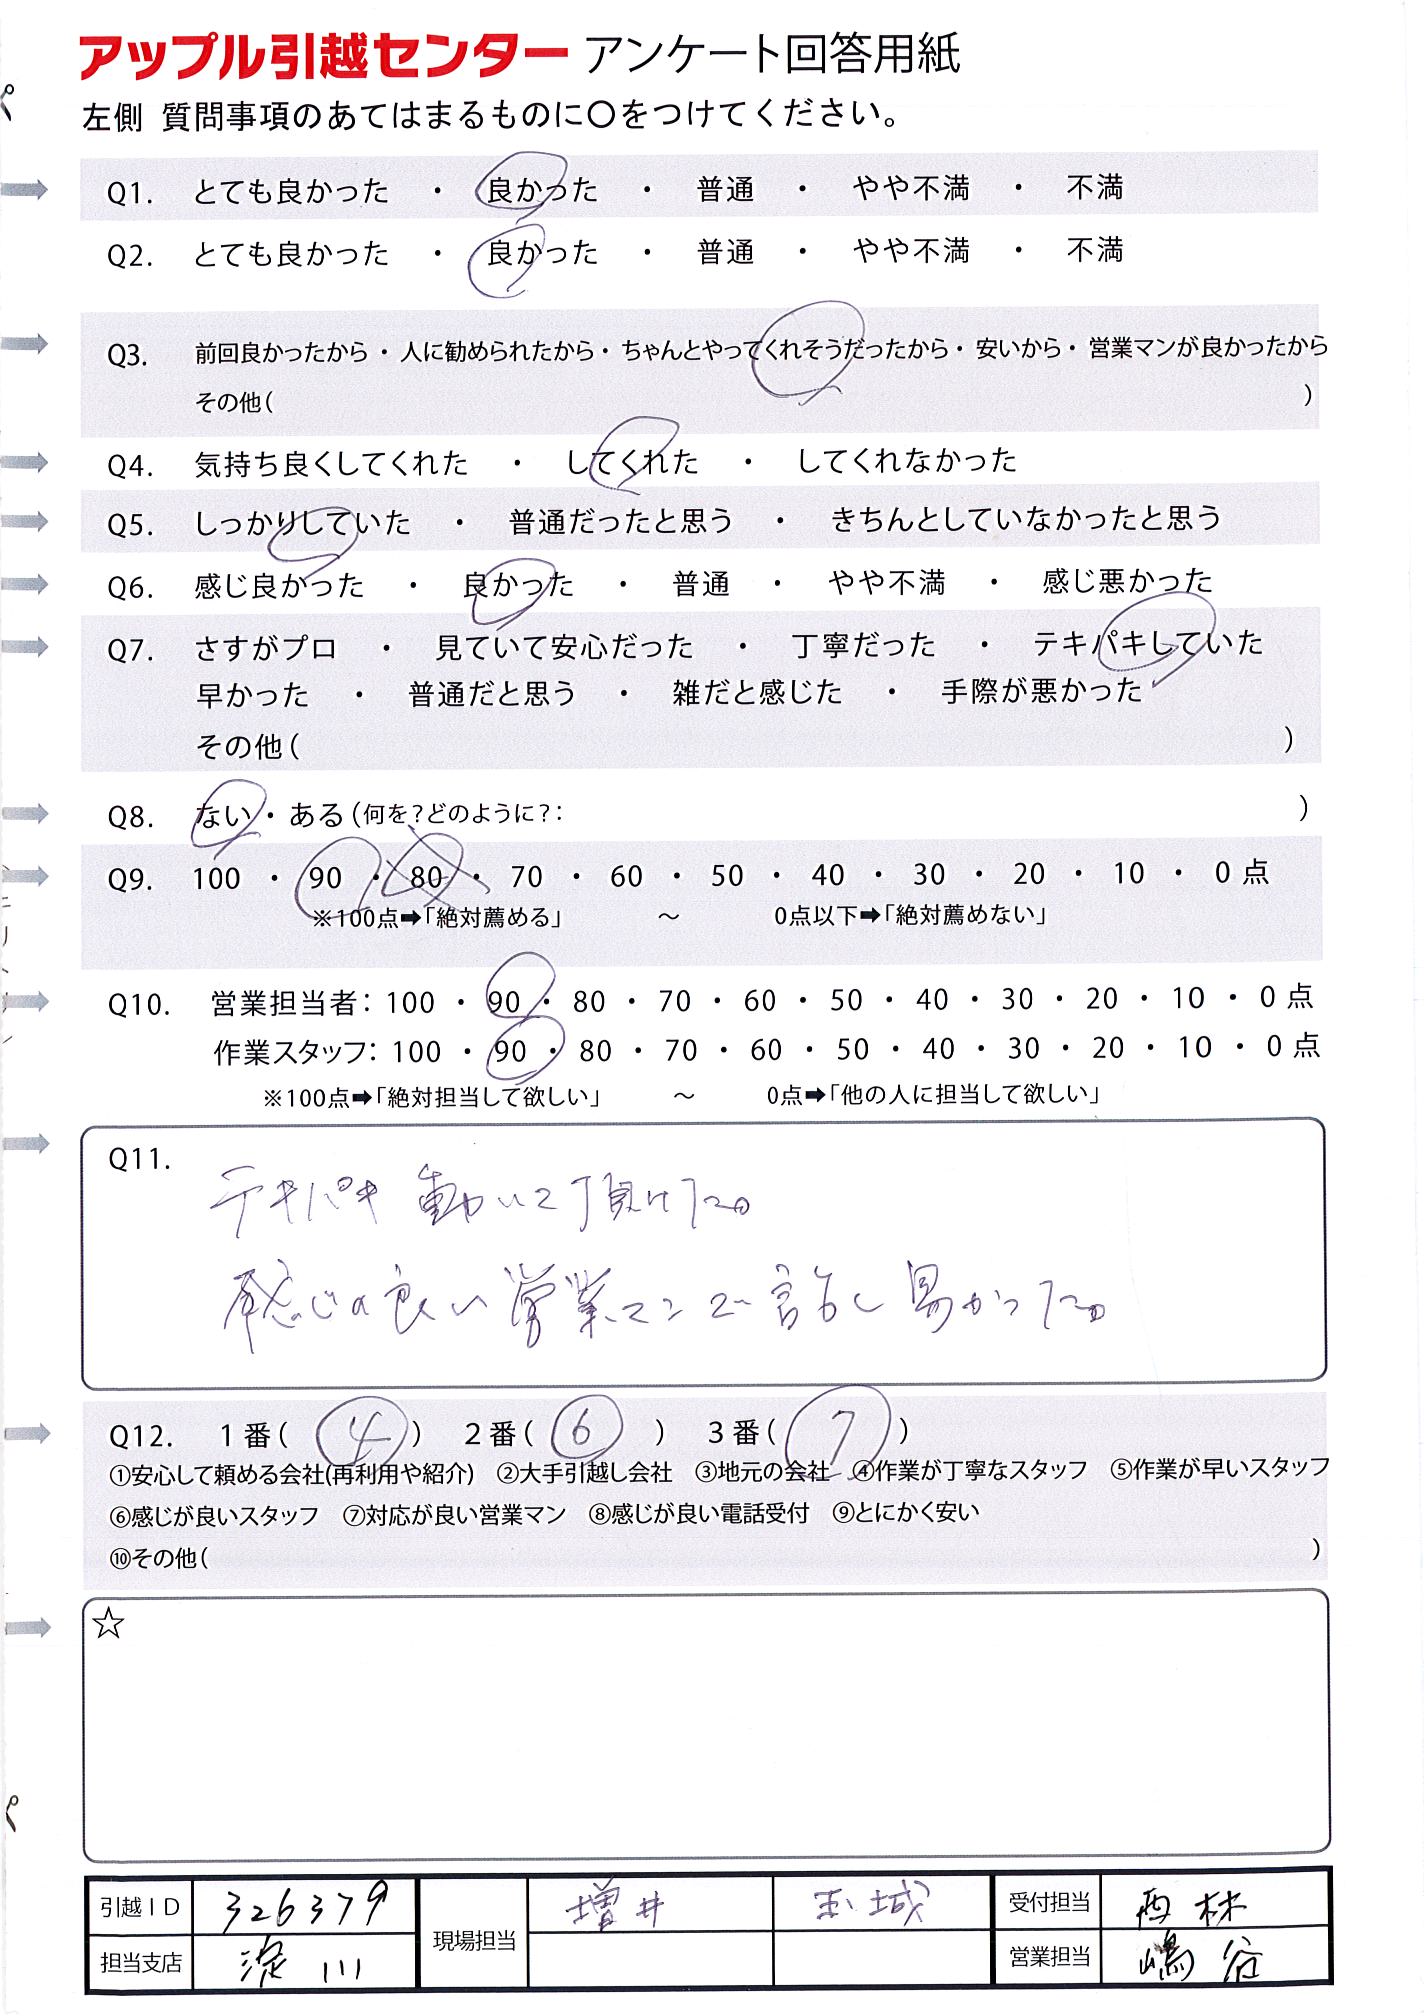 アップル引越センター アンケート回答用紙
左側 質問事項のあてはまるものに〇をつけてください。
Q1. とても良かった ・ 良かった ・ 普通 ・ やや不満 ・ 不満
Q2. とても良かった ・ 良かった ・ 普通 ・ やや不満 ・ 不満
Q3. 前回良かったから・人に勧められたから・ちゃんとやってくれそうだったから・安いから・営業マンが良かったから
その他( )
Q4. 気持ち良くしてくれた ・ してくれた ・ してくれなかった
Q5. しっかりしていた ・ 普通だったと思う ・ きちんとしていなかったと思う
Q6. 感じ良かった ・ 良かった ・ 普通 ・ やや不満 ・ 感じ悪かった
Q7. さすがプロ ・ 見ていて安心だった ・ 丁寧だった ・ テキパキしていた
早かった ・ 普通だと思う ・ 雑だと感じた ・ 手際が悪かった
その他( )
Q8. ない・ある(何を?どのように?: )
Q9. 100 ・ 90 ・ 80 ・ 70 ・ 60 ・ 50 ・ 40 ・ 30 ・ 20 ・ 10 ・ 0点
※100点➡「絶対薦める」 ～ 0点以下➡「絶対薦めない」
Q10. 営業担当者: 100 ・ 90 ・ 80 ・ 70 ・ 60 ・ 50 ・ 40 ・ 30 ・ 20 ・ 10 ・ 0点
作業スタッフ: 100 ・ 90 ・ 80 ・ 70 ・ 60 ・ 50 ・ 40 ・ 30 ・ 20 ・ 10 ・ 0点
※100点➡「絶対担当して欲しい」 ～ 0点➡「他の人に担当して欲しい」
Q11.
テキパキ動いて頂けた。
感じの良い営業マンで話し易かった。
Q12. 1番( 4 ) 2番( 6 ) 3番( 7 )
①安心して頼める会社(再利用や紹介) ②大手引越し会社 ③地元の会社 ④作業が丁寧なスタッフ ⑤作業が早いスタッフ
⑥感じが良いスタッフ ⑦対応が良い営業マン ⑧感じが良い電話受付 ⑨とにかく安い
⑩その他( )
☆
引越ID 326379 現場担当 増井 玉城 受付担当 西林
担当支店 淀川 営業担当 嶋谷